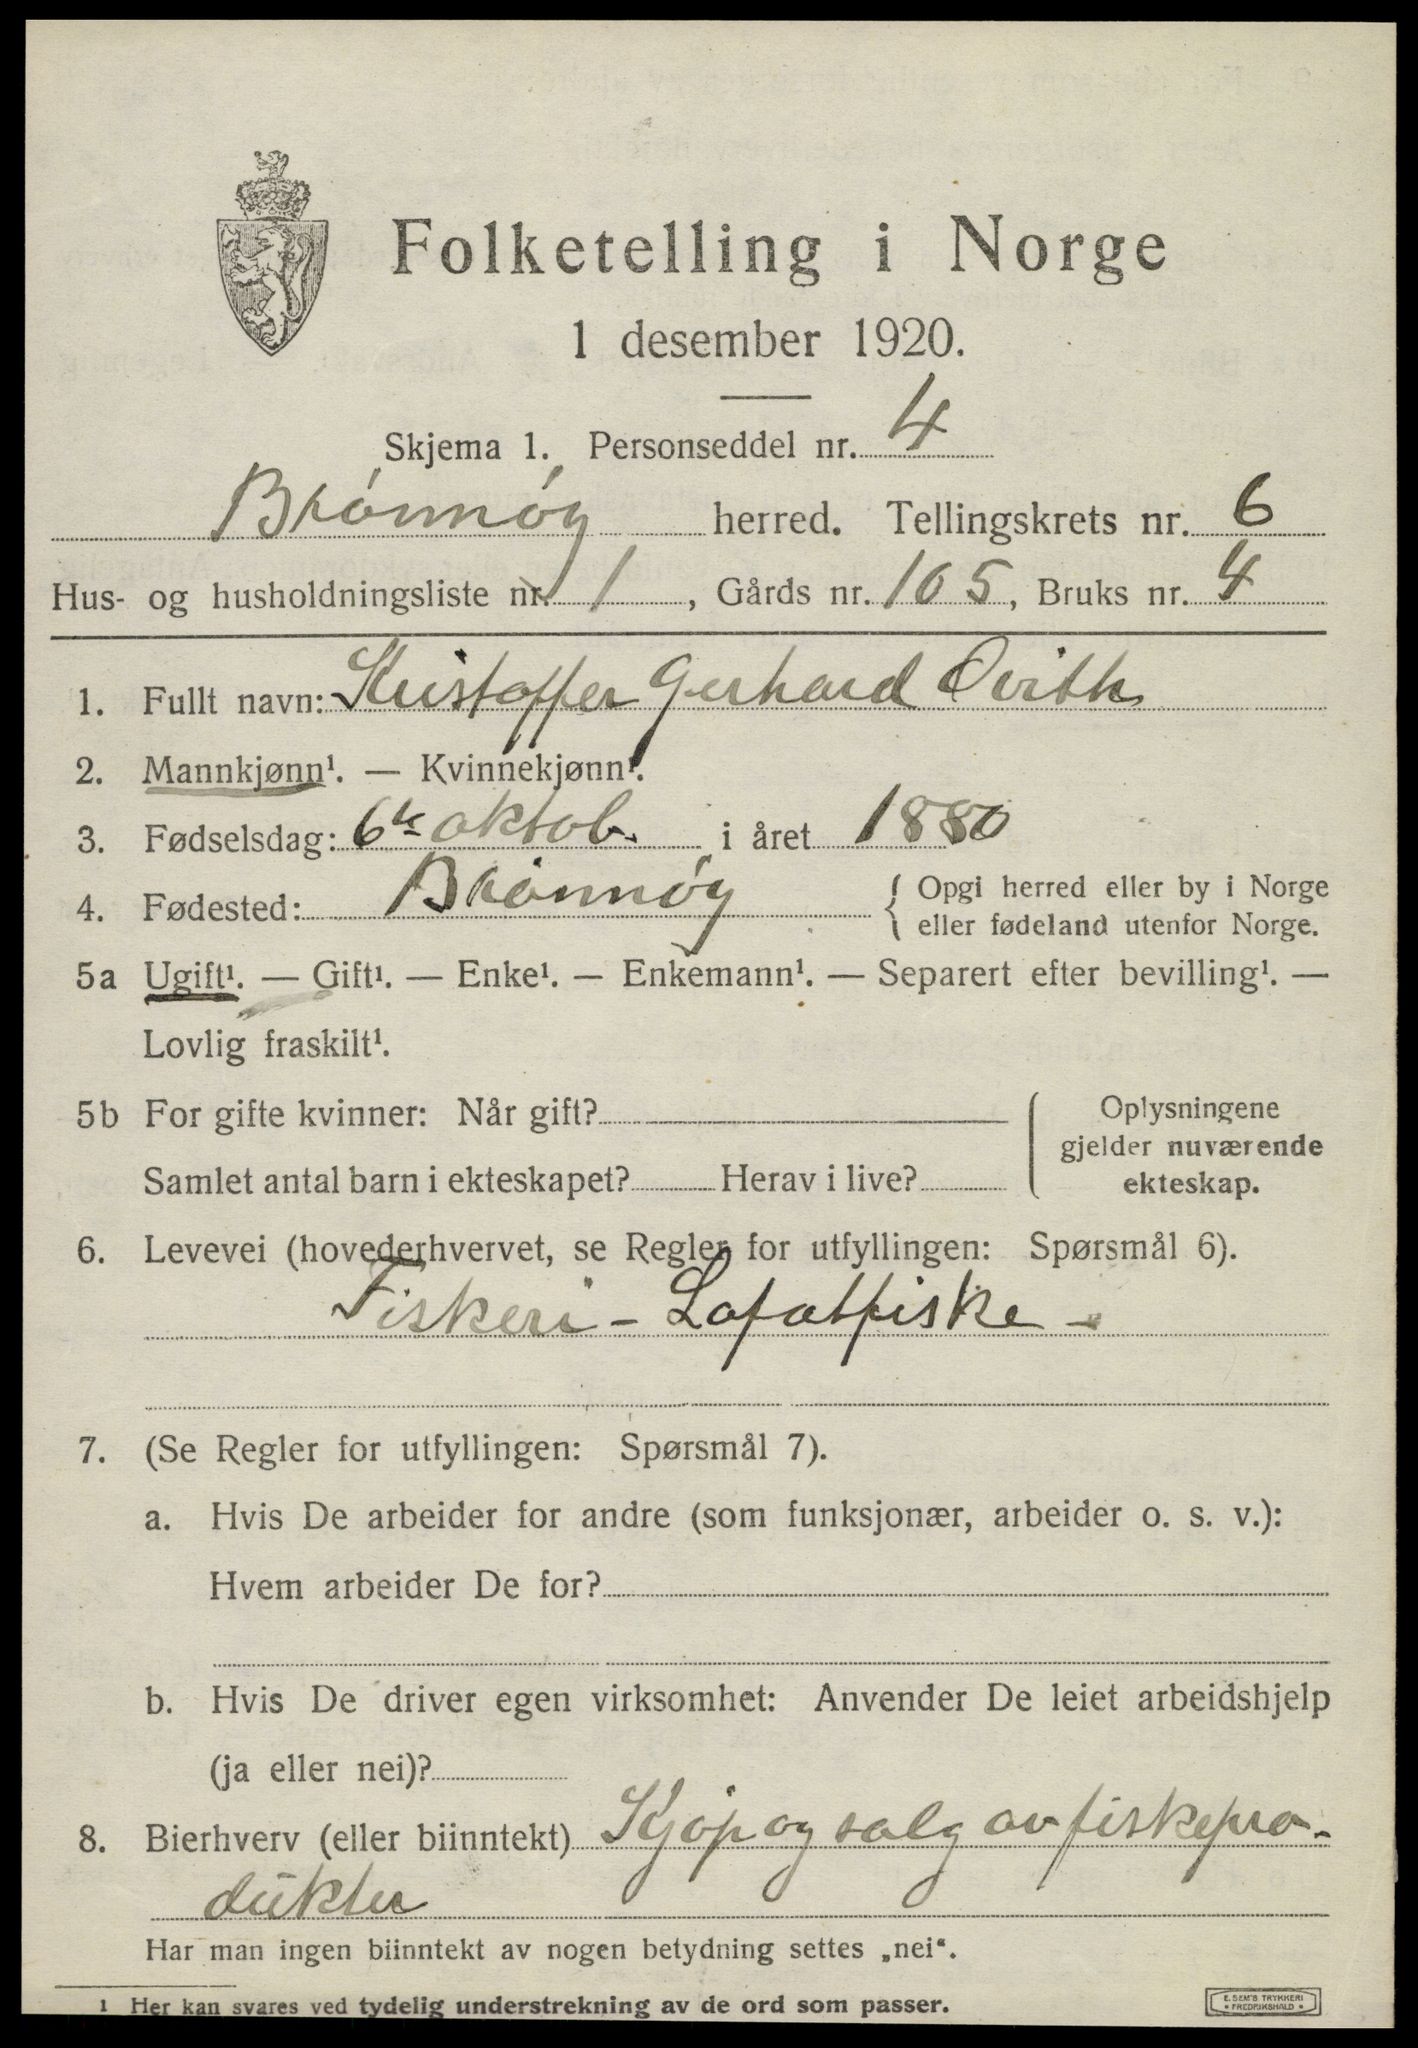 Folketelling i Norge
1 desember 1920.
Skjema 1. Personseddel nr. 4
Brönnöy herred. Tellingskrets nr. 6
Hus- og husholdningsliste nr. 1, Gårds nr. 105, Bruks nr. 4
1. Fullt navn: Kristoffer Gerhard Qvith
2. Mannkjønn¹. — Kvinnekjønn¹.
3. Fødselsdag: 6te oktob. i året 1880
4. Fødested: Brönnöy { Opgi herred eller by i Norge
eller fødeland utenfor Norge.
5a Ugift¹. — Gift¹. — Enke¹. — Enkemann¹. — Separert efter bevilling¹. —
Lovlig fraskilt¹.
5b For gifte kvinner: Når gift?
Samlet antal barn i ekteskapet? Herav i live?
Oplysningene
gjelder nuværende
ekteskap.
6. Levevei (hovederhvervet, se Regler for utfyllingen: Spørsmål 6).
Fiskeri - Lofotfiske -
7. (Se Regler for utfyllingen: Spørsmål 7).
a. Hvis De arbeider for andre (som funksjonær, arbeider o. s. v.):
Hvem arbeider De for?
b. Hvis De driver egen virksomhet: Anvender De leiet arbeidshjelp
(ja eller nei)?
8. Bierhverv (eller biinntekt) Kjöp og salg av fiskepro-
dukter
Har man ingen biinntekt av nogen betydning settes „nei“.
1 Her kan svares ved tydelig understrekning av de ord som passer.
E. SEM'S TRYKKERI
FREDRIKSHALD